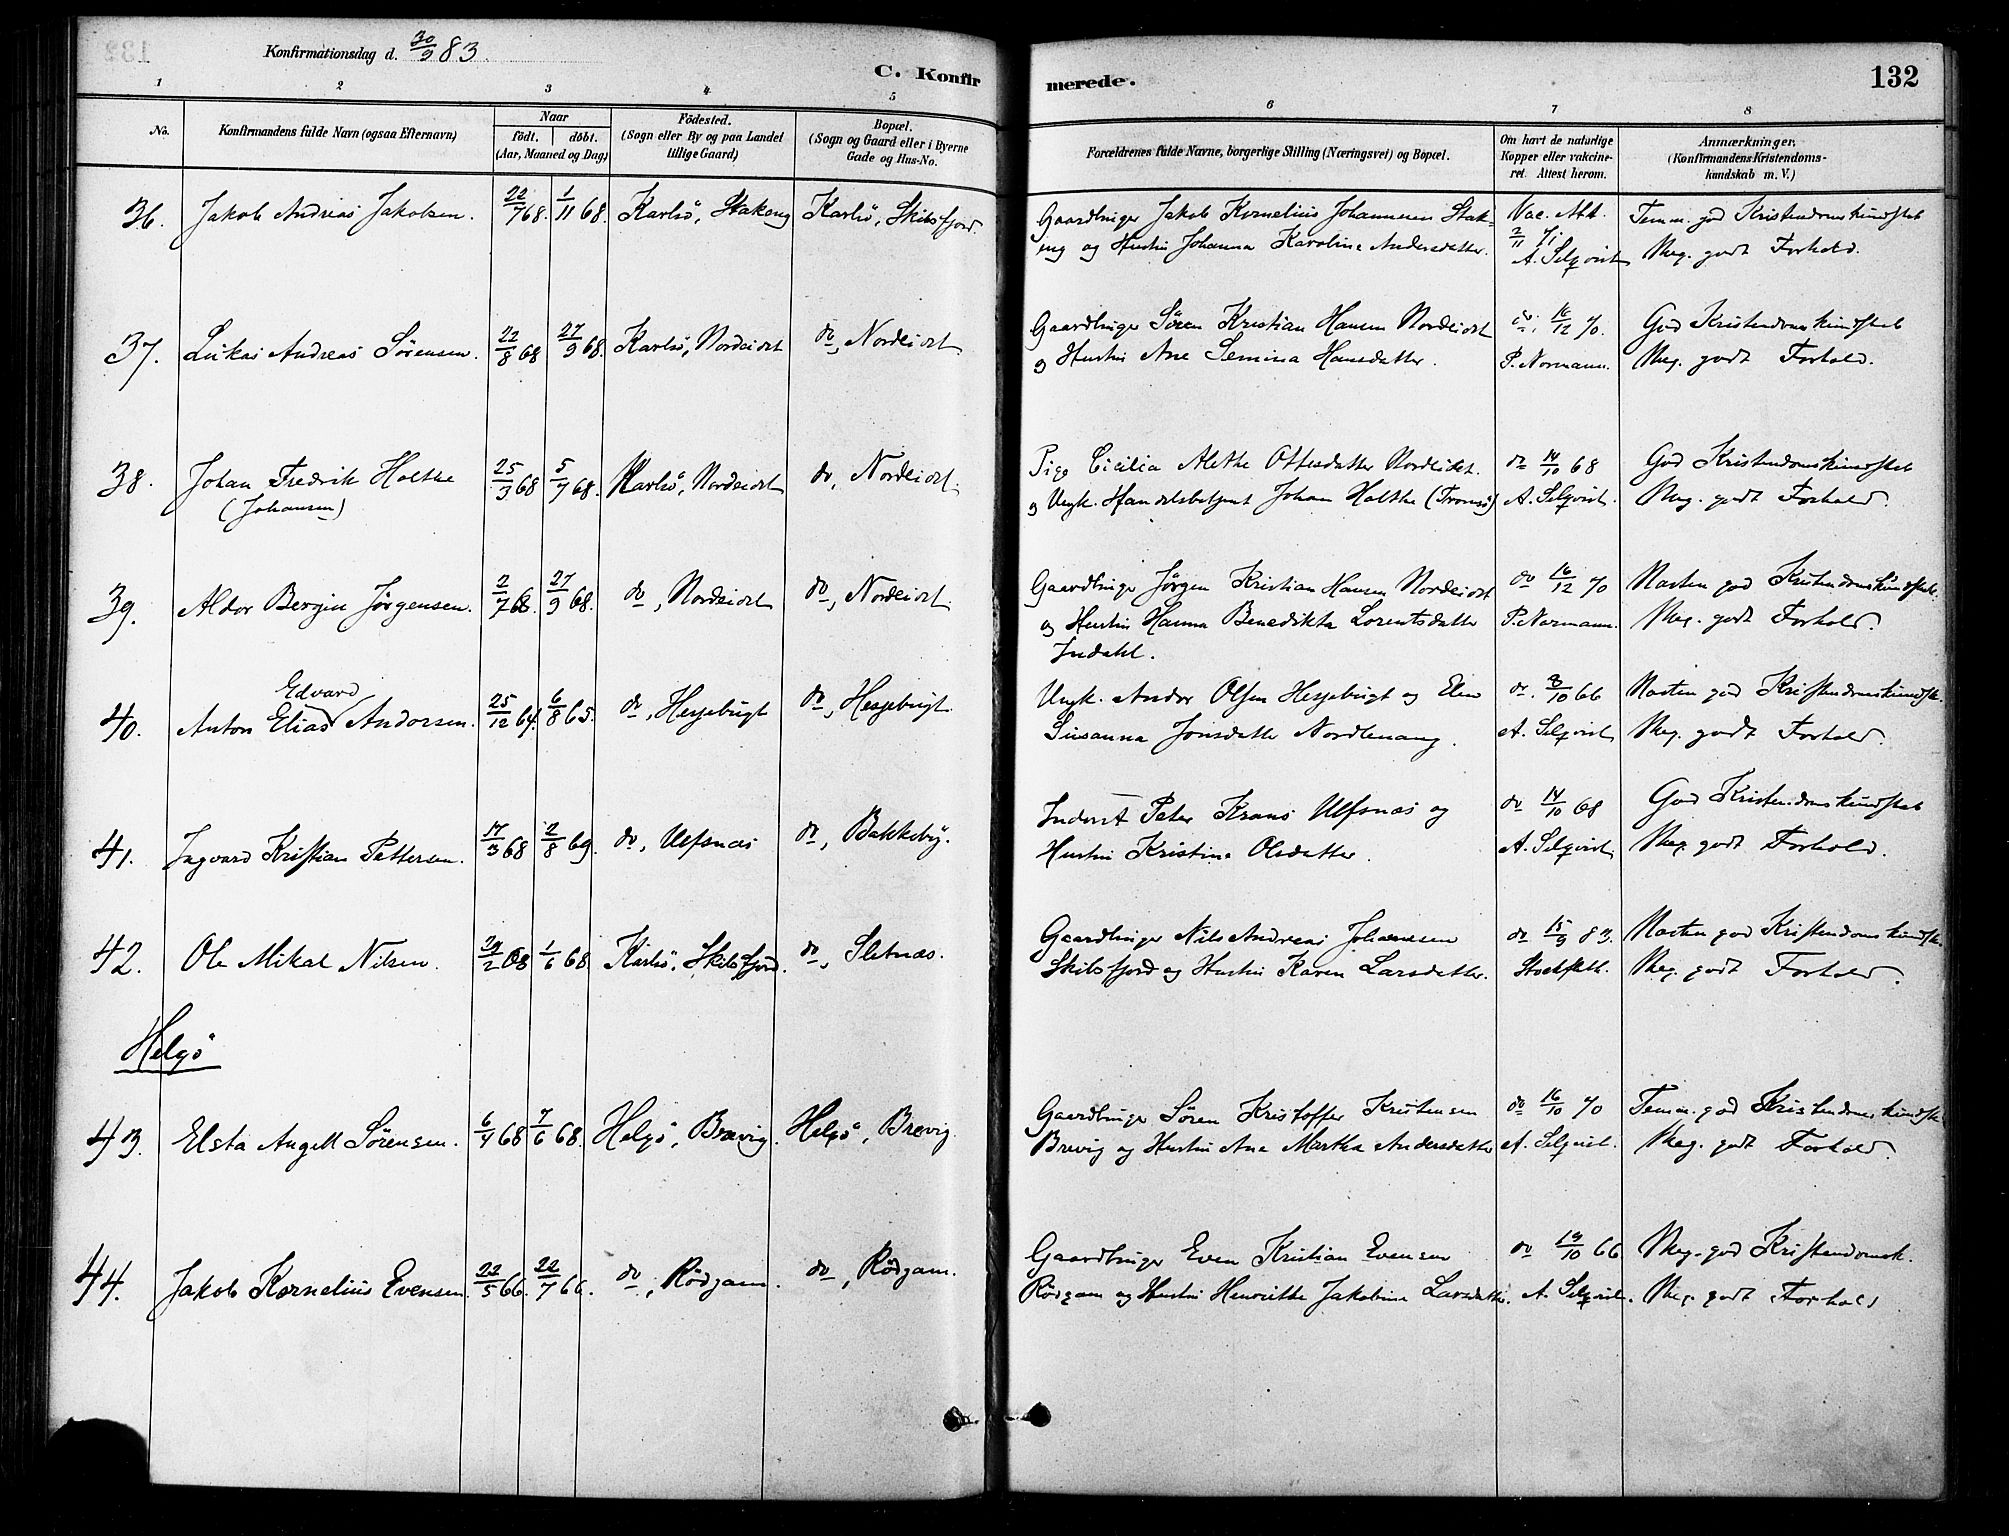 Konfirmationsdag d. 30/9 83.
C. Konfirmerede.
132
1 2 3 4 5 6 7 8
No.
Konfirmandens fulde Navn (ogsaa Efternavn)
Naar
födt. döbt.
(Aar, Maaned og Dag)
Födested.
(Sogn eller By og paa Landet
tillige Gaard)
Bopæl.
(Sogn og Gaard eller i Byerne
Gade og Hus-No.
Forældrenes fulde Navne, borgerlige Stilling (Næringsvei) og Bopæl.
Om havt de naturlige
Kopper eller vakcine-
ret. Attest herom.
Anmærkninger,
(Konfirmandens Kristendoms-
kundskab m. V.)
36. Jakob Andreas Jakobsen. 22/7 68. 1/11 68. Karlsö, Stakeng Karlsö, Skibsfjord.
Gaardbruger Jakob Kornelius Johannesen Stak-
eng og Hustru Johanna Karoline Andersdatter.
Vac. Att.
2/11 71
A. Selqvist
Temm. god Kristendomskundskab
Meg. godt Forhold.
37. Lukas Andreas Sörensen. 22/8 68 27/9 68. Karlsö, Nordeidet do, Nordeidet
Gaardbruger Sören Kristian Hansen Nordeidet
og Hustru Ane Semina Hansdatter.
do. 16/12 70.
P. Normann.
God Kristendomskundskab
Meg. godt Forhold.
38. Johan Fredrik Holthe
(Johansen)
25/3 68 5/7 68. Karlsö, Nordeidet do, Nordeidet.
Pige Cicilia Alethe Ottesdatter Nordeidet.
og Ungk. Handelsbetjent Johan Holthe (Tromsö)
do 14/10 68
A. Selqvist.
God Kristendomskundskab
Meg. godt Forhold.
39. Aldor Bergin Jörgensen. 2/7 68. 27/9 68. do, Nordeidet do, Nordeidet.
Gaardbruger Jörgen Kristian Hansen Nordeidet
og Hustru Hanna Benedikta Lorentsdatter
Indahl.
do 16/12 70
P. Normann.
Næsten god Kristendomskundskab.
Meg. godt Forhold.
40. Anton Elias Edvard Andorsen. 25/12 64. 6/8 65. do, Hessebugt do, Hessebugt.
Ungk. Andor Olsen Hessebugt og Elen
Susanna Jonsdatter Nordlenang.
do. 8/10 66
A. Selqvist
Næsten god Kristendomskundsk.
Meg. godt Forhold.
41. Ingvard Kristian Pettersen. 17/3 68 2/8 69. do, Ulfsnæs do, Bakkeby.
Inderst Peter Krans Ulfsnæs og
Hustru Kristine Olsdatter.
do 14/10 68
A. Selqvist
God Kristendomskundskab
Meg. godt Forhold.
42. Ole Mikal Nilsen. 29/2 68 1/6 68 Karlsö, Skibsfjord. do, Sletnæs.
Gaardbruger Nils Andreas Johannesen
Skibsfjord og Hustru Karen Larsdatter.
do 15/9 83.
Stockfleth.
Næsten god Kristendomskundsk.
Meg. godt Forhold.
Helgö
43. Elsta Angell Sörensen. 6/4 68 7/6 68. Helgö, Brævig. Helgö, Brevig.
Gaardbruger Sören Kristoffer Kristensen
Brevig og Hustru Ane Martha Andersdatter
do 16/10 70
A. Selqvist.
Temm. god Kristendomskundsk.
Meg. godt Forhold.
44. Jakob Kornelius Evensen. 22/5 66. 22/7 66. do, Rödgam. do, Rödgam.
Gaardbruger Even Kristian Evensen
Rödgam og Hustru Henrikke Jakobine Larsdatter.
do 14/10 66
A. Selqvist.
Meg. god Kristendomsk.
Meg. godt Forhold